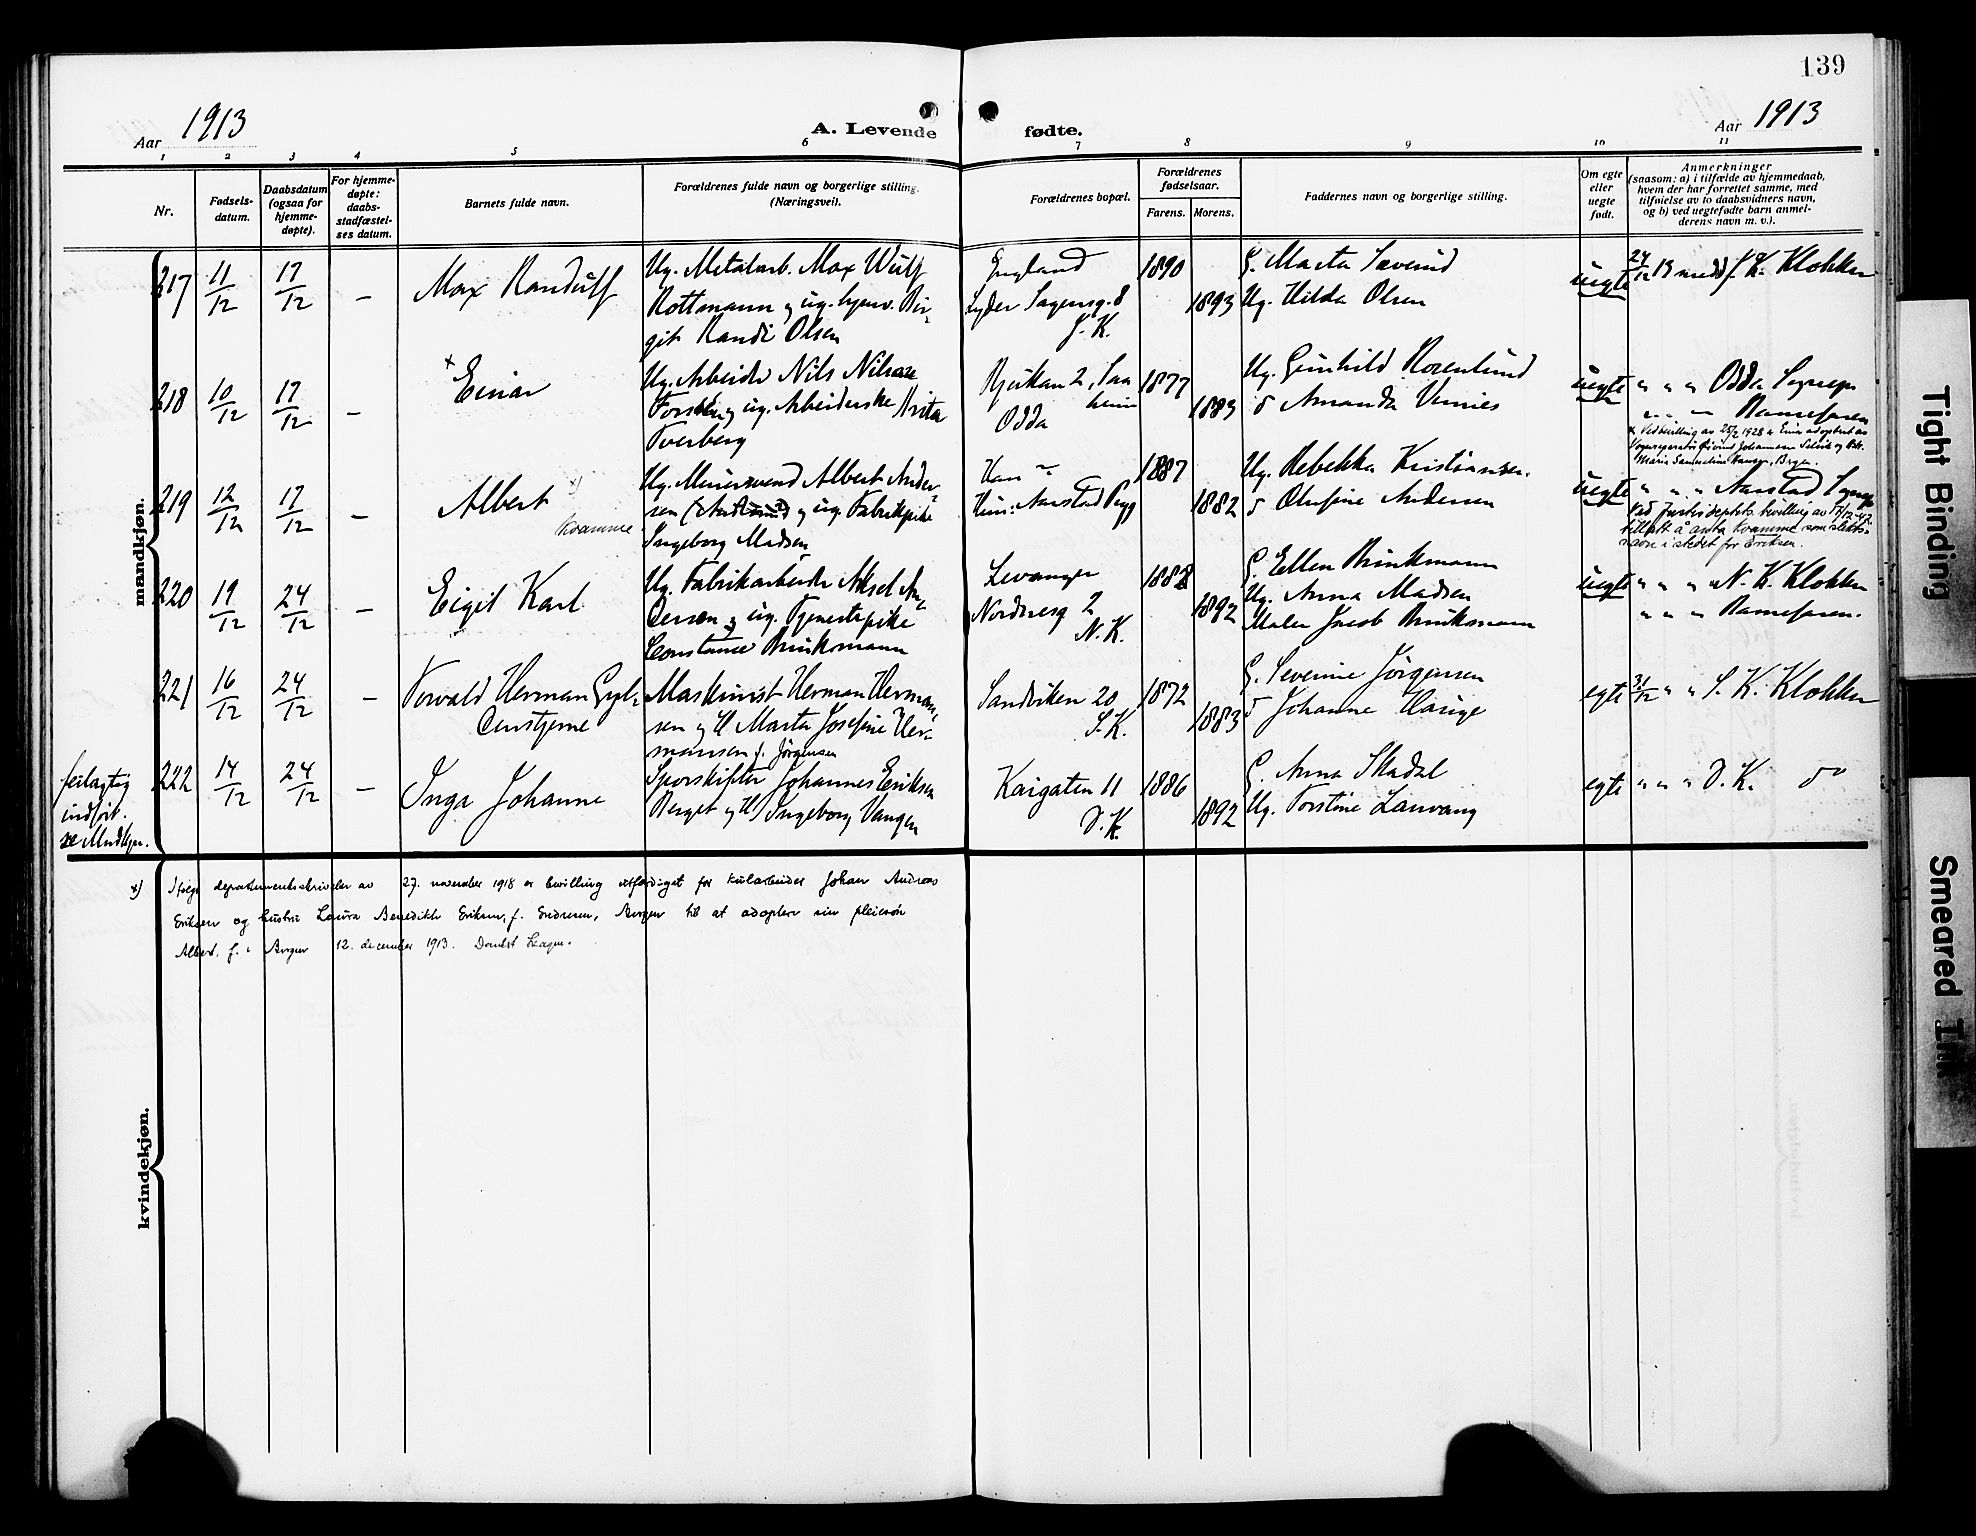 139
Aar 1913
A. Levende fødte.
Aar 1913
1 2 3 4 5 6 7 8 9 10 11
Nr.
Fødsels-
datum.
Daabsdatum
(ogsaa for
hjemme-
døpte).
For hjemme-
døpte:
daabs-
stadfæstel-
ses datum.
Barnets fulde navn.
Forældrenes fulde navn og borgerlige stilling.
(Næringsvei).
Forældrenes bopæl.
Forældrenes
fødselsaar.
Farens. Morens.
Faddernes navn og borgerlige stilling.
Om egte
eller
uegte
født.
Anmerkninger
(saasom: a) i tilfælde av hjemmedaab,
hvem der har forrettet samme, med
tilføielse av to daabsvidners navn,
og b) ved uegtefødte barn anmel-
derens navn m. v.).
mandkjøn.
217 11/12 17/12 –
Max Randulf
Ug. Metalarb. Max Wulf
Rottmann og ug.
git Randi Olsen
England
Lyder Sagensg. 8
J. K.
1890
1893
G. Marta Sæverud
Ug. Hilda Olsen
uegte
24/12 13 medd J. K. Klokker
218 10/12 17/12 –
x Einar
Ug. Arbeider Nils Nilsen
og ug. Arbeiderske Brita
Tverberg
Rjukan 2, Saa
heim
Odda
1877
1883
Ug. Gunhild Rosenlund
Amanda
uegte
" " " Odda Sognepr
x Ved bevilling av 1928 er Einar adoptert av
Bergen.
219 12/12 17/12 –
Albert x)
Kvamme
Ug. Murersvend Albert Ander-
sen og ug. Fabrikpike
Ingeborg Madsen
1887
1882
Ug. Rebekka Kristiansen.
Olufine Andersen
uegte
" " " Aarstad Sognepr
Ved Justisdeptets bevilling av
tillatt å anta Kvamme som slekts-
navn i stedet for Eriksen.
220 19/12 24/12 –
Eigil Karl
Ug. Fabrikarbeider Aksel An-
dersen og ug. Tjenestepike
Constance Brinkmann
Levanger
Nordnesg 2
N. K.
1888
1892
G. Ellen Brinkmann
Ug. Anna Madsen
Maler Jacob Brinkmann
uegte
" " " N. K. Klokker
221 16/12 24/12 –
Torvald Herman Gyl-
denstjerne
Maskinist Herman Herman-
sen og H Marta Josefine Her-
mansen f. Jörgensen
Sandviken 20
S. K.
1872
1883
G. Severine Jörgensen
Johanne Hauge
egte
31/12 " " S. K. Klokker
feilagtig
indført.
se Kvindkjøn.
222 14/12 24/12 –
Inga Johanne
Sporskifter Johannes Eriksen
Berget og H Ingeborg Vangen
Kaigaten 11
D. K.
1886
1892
G. Anna Skadal
Ug. Torstine Lauvang
egte
" " " D. K. do
x) Ifølge departementsskrivelse av 27. november 1918 er bevilling utfærdiget for kularbeider Johan Andreas
Eriksen og hustru Laura Benedikte Eriksen, f. Endresen, Bergen til at adoptere sin pleiesøn
Albert f. i Bergen 12. december 1913.
kvindekjøn.
Tight Binding
Smeared Ink